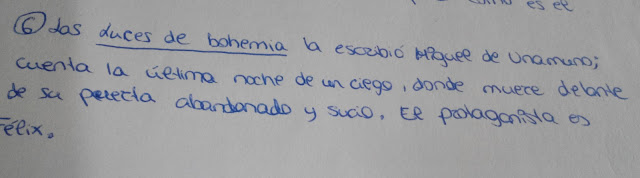 como es el
⑥ Las Luces de bohemia la escribió Miguel de Unamuno;
cuenta la última noche de un ciego, donde muere delante
de su puerta abandonado y sucio. El protagonista es
Félix.